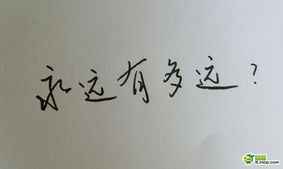 永远有多远？